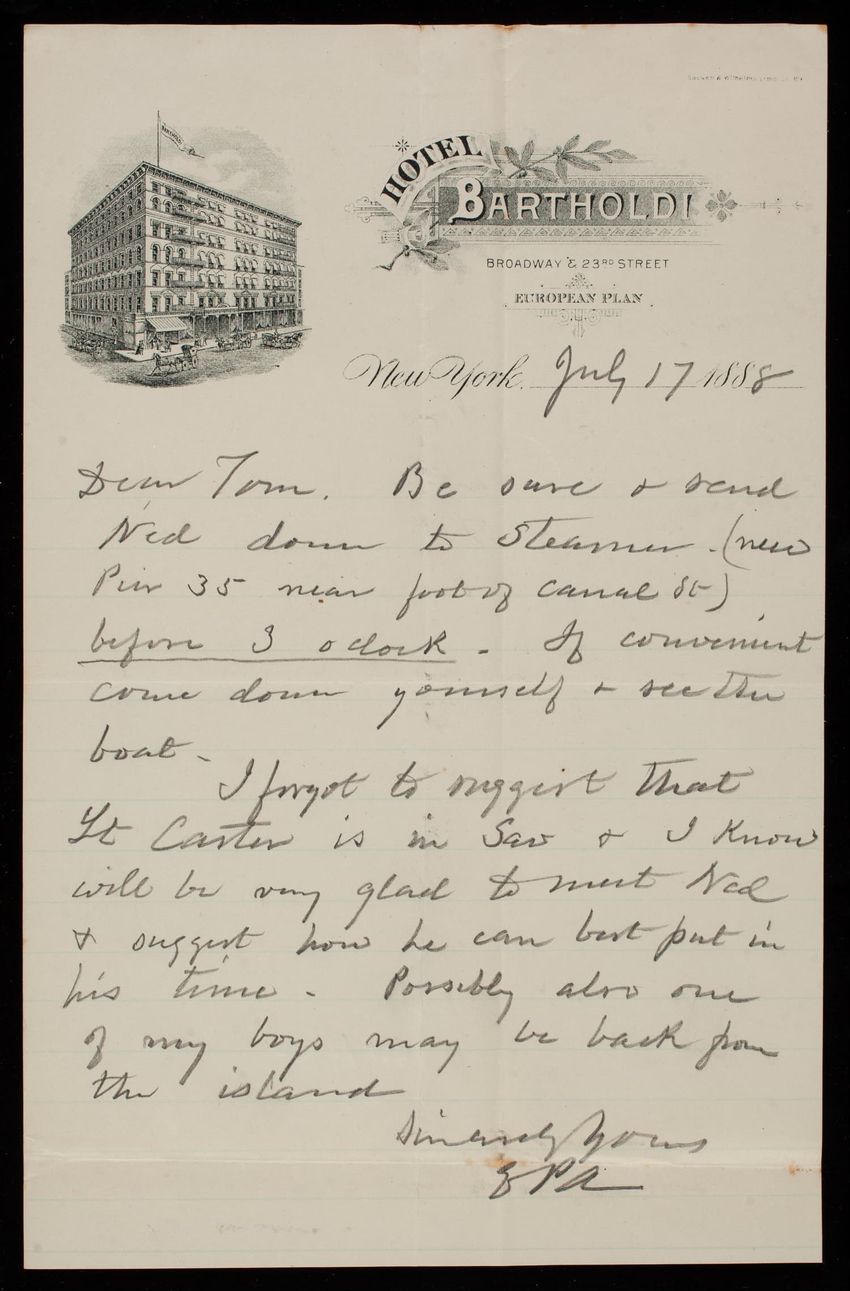 HOTEL
BARTHOLDI
BROADWAY & 23RD STREET
EUROPEAN PLAN
BARTHOLDI
New York, July 17 1888
Dear Tom. Be sure & send
Ned down to Steamer. (new
Pier 35 near foot of Canal St)
before 3 o clock - If convenient
come down yourself & see the
boat -
I forgot to suggest that
Lt Carter is in Sav & I know
will be very glad to meet Ned
& suggest how he can best put in
his time - Possibly also one
of my boys may be back from
the island
Sincerely Yours
EPA